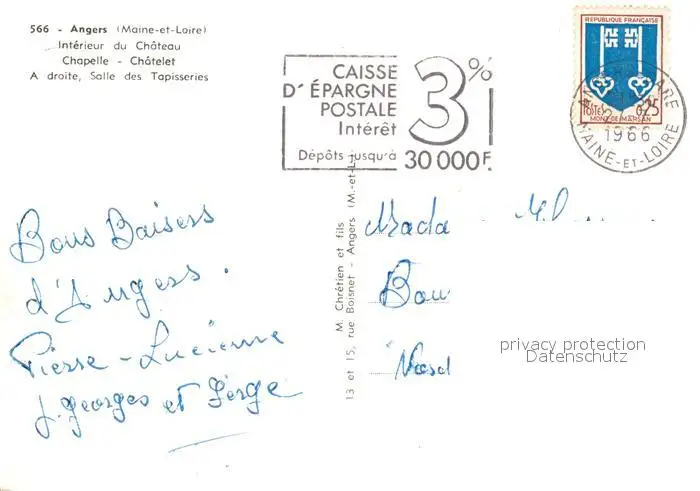 566 - Angers (Maine-et-Loire)
Intérieur du Château
Chapelle - Châtelet
A droite, Salle des Tapisseries
CAISSE
D'ÉPARGNE
POSTALE
Intérêt
3%
Dépôts jusqu'à 30 000 F.
REPUBLIQUE FRANÇAISE
POSTES
0,25
MONT-DE-MARSAN
GARE
1966
MAINE-ET-LOIRE
Bons Baisers
d'Angers.
Pierre - Lucienne
J. Georges et Serge
M. Chrétien et fils
13 et 15, rue Boisnet - Angers (M.-et-L.)
Mada
privacy protection
Datenschutz